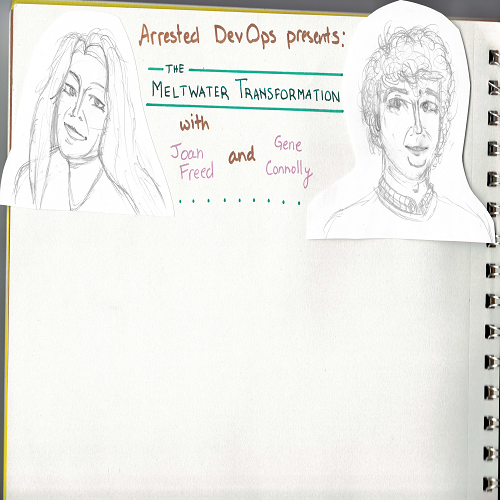 Arrested DevOps presents:
THE
MELTWATER TRANSFORMATION
with
Joan Freed and Gene Connolly